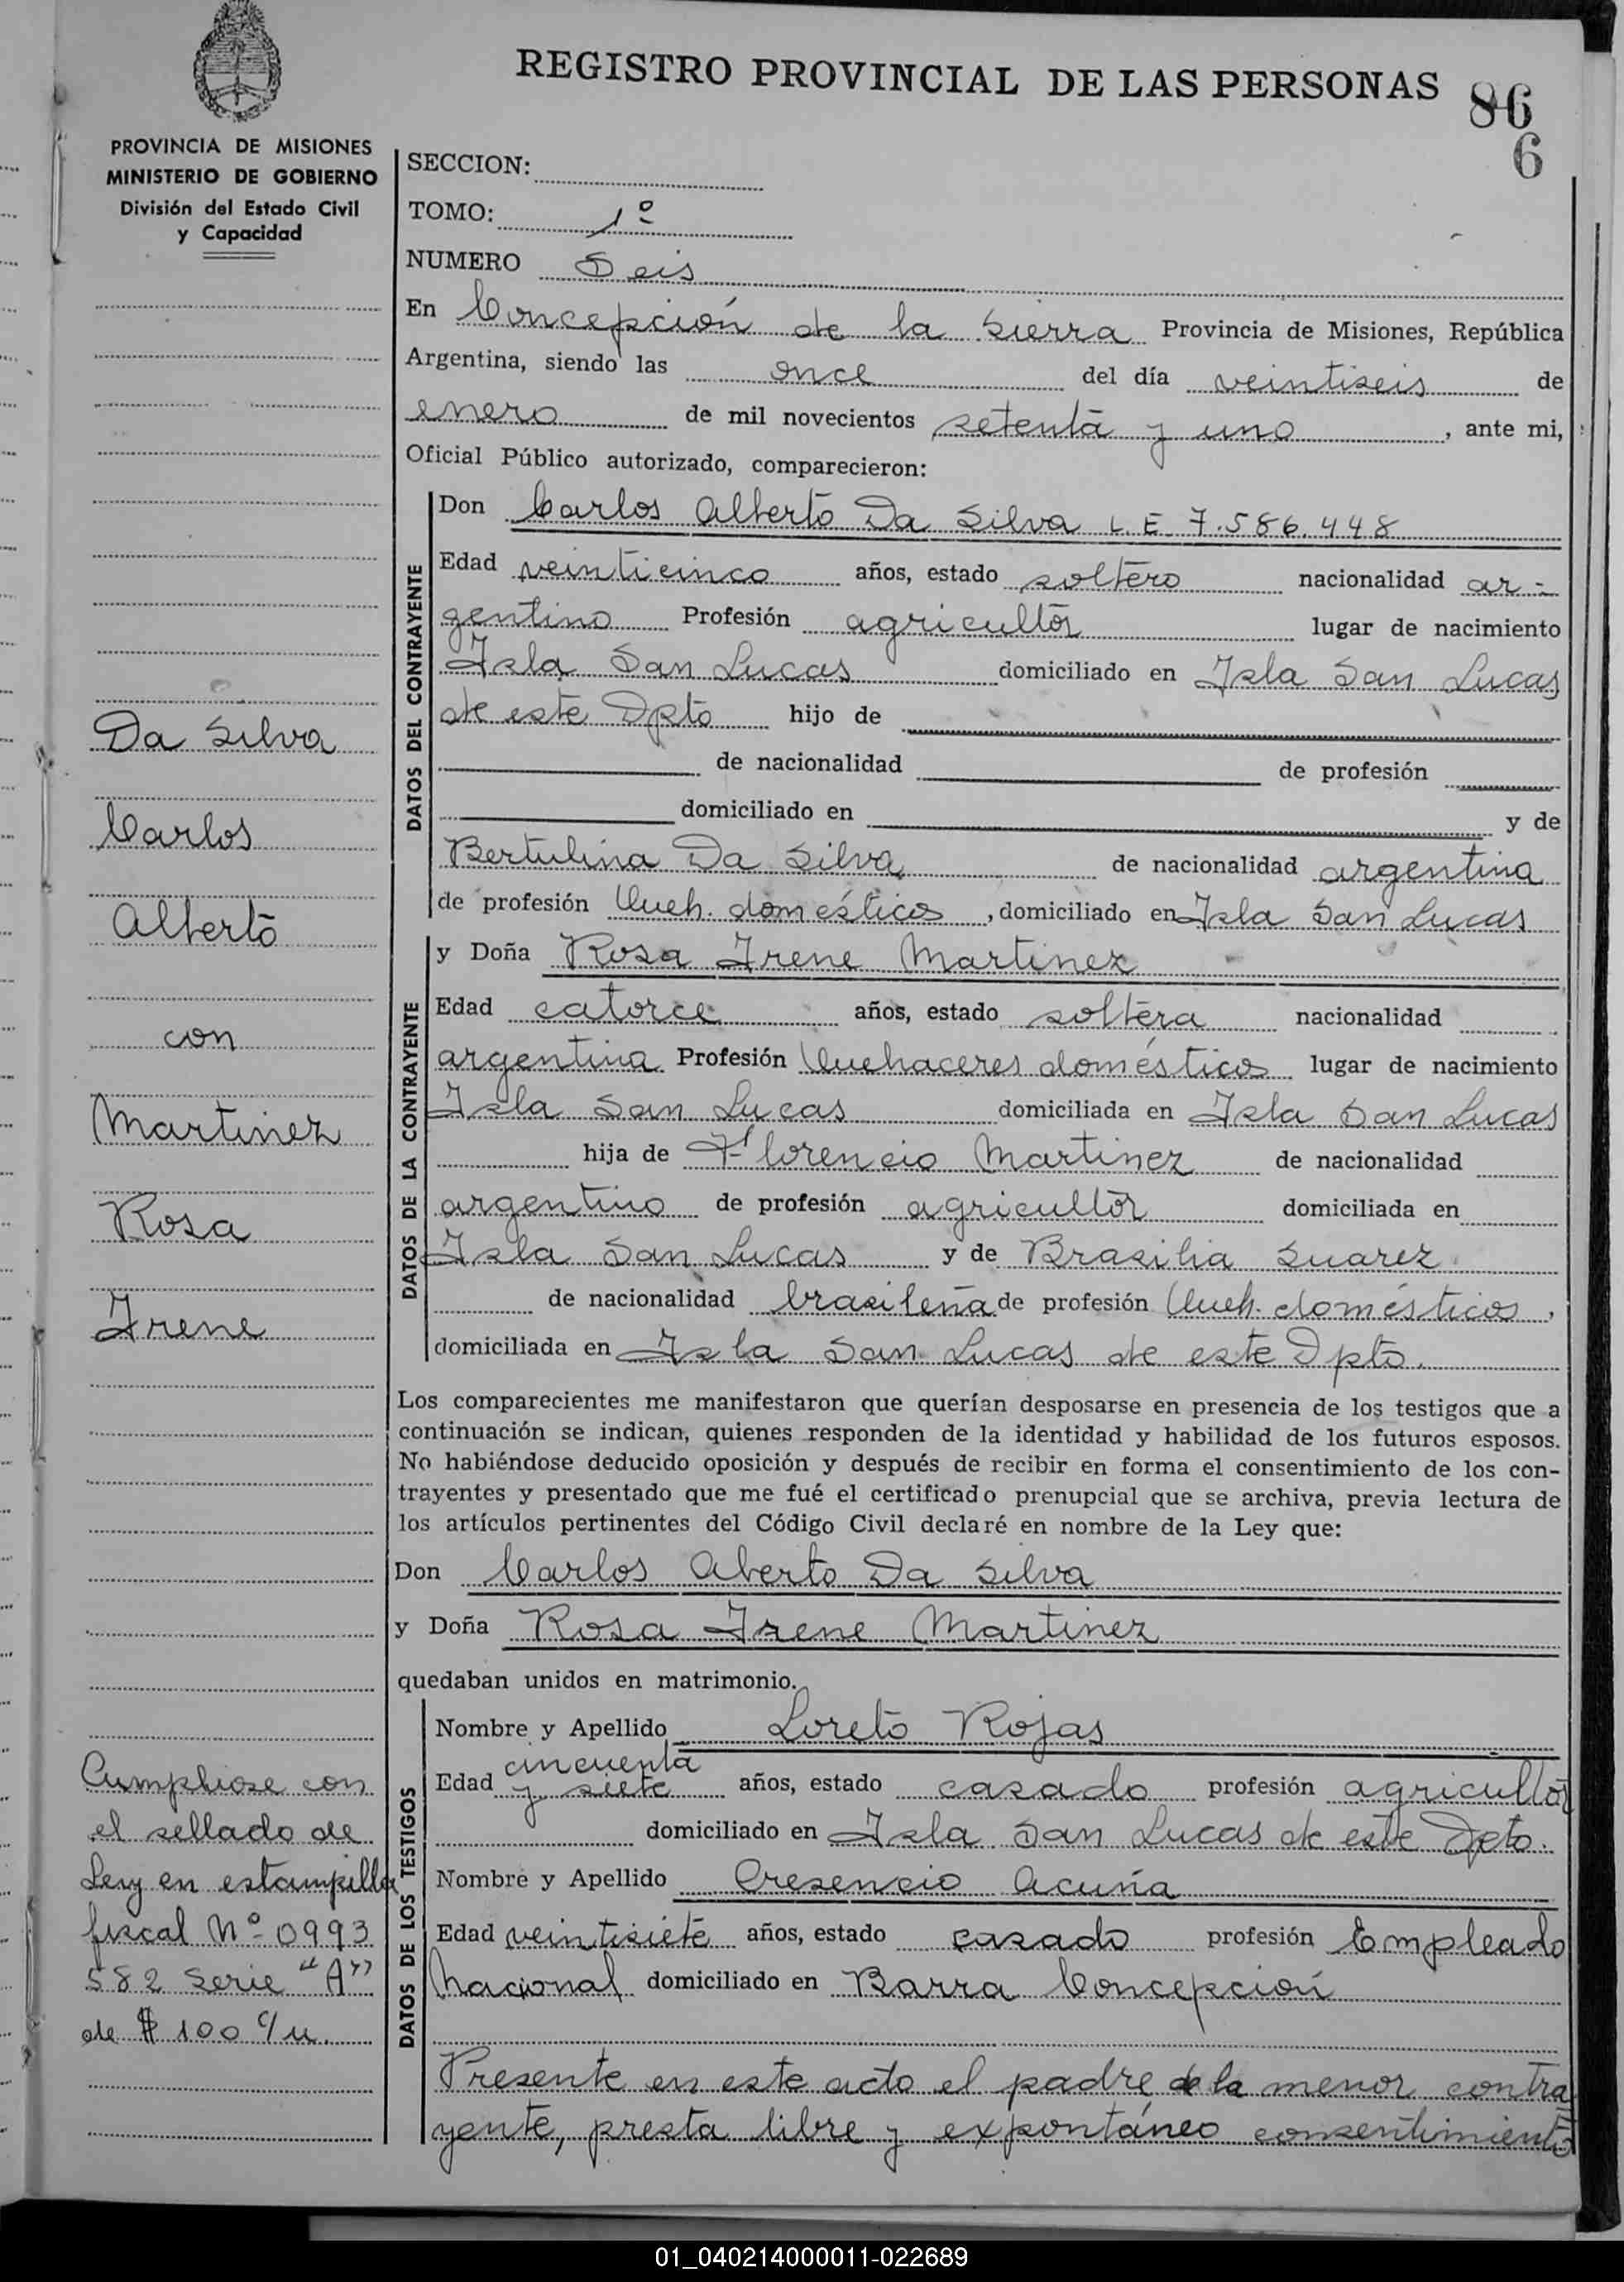 REGISTRO PROVINCIAL DE LAS PERSONAS
86
6
PROVINCIA DE MISIONES
MINISTERIO DE GOBIERNO
División del Estado Civil
y Capacidad
SECCION:
TOMO: 1º
NUMERO Seis
En Concepción de la Sierra Provincia de Misiones, República
Argentina, siendo las once del día veintiseis de
enero de mil novecientos setenta y uno, ante mi,
Oficial Público autorizado, comparecieron:
DATOS DEL CONTRAYENTE
Don Carlos Alberto Da Silva L.E. 7.586.448
Edad veinticinco años, estado soltero nacionalidad ar-
gentino Profesión agricultor lugar de nacimiento
Isla San Lucas domiciliado en Isla San Lucas
de este Dpto hijo de
de nacionalidad de profesión
domiciliado en y de
Bertulina Da Silva de nacionalidad argentina
de profesión Queh. domésticos, domiciliado en Isla San Lucas
DATOS DE LA CONTRAYENTE
y Doña Rosa Irene Martinez
Edad catorce años, estado soltera nacionalidad
argentina Profesión Quehaceres domésticos lugar de nacimiento
Isla San Lucas domiciliada en Isla San Lucas
hija de Florencio Martinez de nacionalidad
argentino de profesión agricultor domiciliada en
Isla San Lucas y de Brasilia Suarez
de nacionalidad brasileña de profesión Queh. domésticos,
domiciliada en Isla San Lucas de este Dpto.
Los comparecientes me manifestaron que querían desposarse en presencia de los testigos que a
continuación se indican, quienes responden de la identidad y habilidad de los futuros esposos.
No habiéndose deducido oposición y después de recibir en forma el consentimiento de los con-
trayentes y presentado que me fué el certificado prenupcial que se archiva, previa lectura de
los artículos pertinentes del Código Civil declaré en nombre de la Ley que:
Don Carlos Aberto Da Silva
y Doña Rosa Irene Martinez
quedaban unidos en matrimonio.
DATOS DE LOS TESTIGOS
Nombre y Apellido Loreto Rojas
cincuenta
Edad y siete años, estado casado profesión agricultor
domiciliado en Isla San Lucas de este Dpto.
Nombre y Apellido Cresencio Acuña
Edad veintisiete años, estado casado profesión Empleado
Nacional domiciliado en Barra Concepción
Presente en este acto el padre de la menor contra
yente, presta libre y expontáneo consentimiento
Da Silva
Carlos
Alberto
con
Martinez
Rosa
Irene
Cumpliose con
el sellado de
Ley en estampilla
fiscal Nº 0993
582 Serie "A"
de $ 100 c/u.
01_040214000011-022689